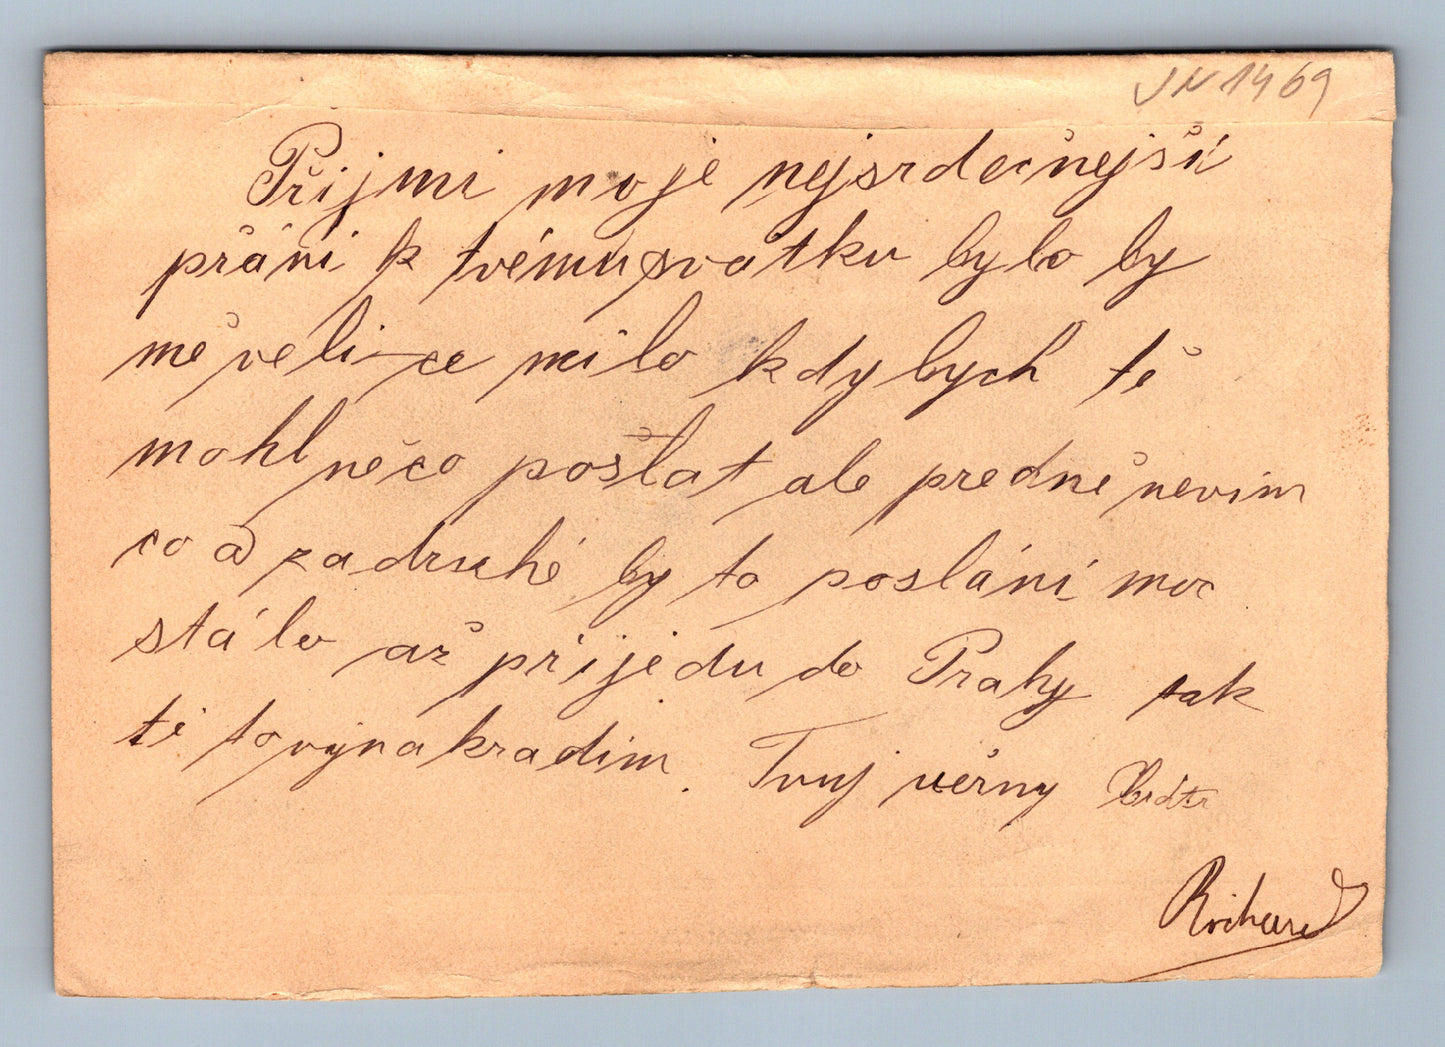 JN 1469
Přijmi moje nejsrdečnejší
přání k tvému svátku bylo by
mě velice milo kdybych tě
mohl něco pošlat ale predně nevim
co a zadruhé by to poslání moc
stálo až přijedu do Prahy tak
ti to vynakradim. Tvuj věrny bratr
Richard